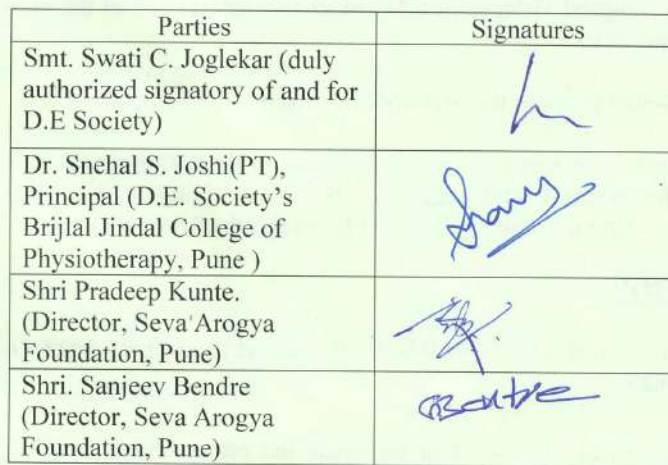 Parties Signatures
Smt. Swati C. Joglekar (duly
authorized signatory of and for
D.E Society)
Dr. Snehal S. Joshi(PT),
Principal (D.E. Society's
Brijlal Jindal College of
Physiotherapy, Pune )
Shri Pradeep Kunte.
(Director, Seva Arogya
Foundation, Pune)
Shri. Sanjeev Bendre
(Director, Seva Arogya
Foundation, Pune)